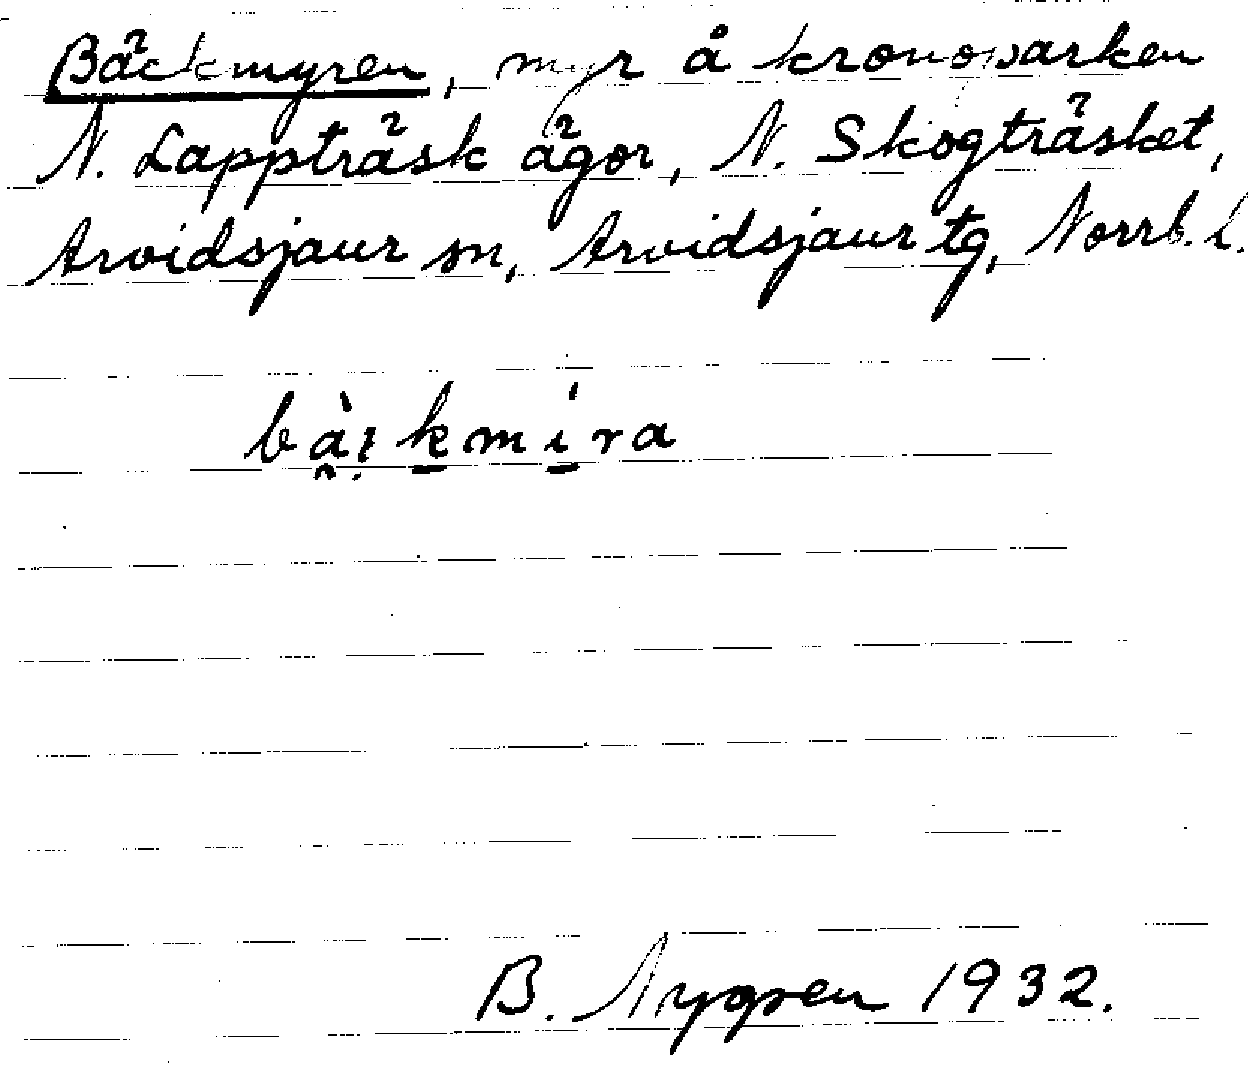 Bäckmyren, myr å kronoparken
N. Lappträsk ägor, N. Skogträsket,
Arvidsjaur sn, Arvidsjaur tg, Norrb. l.
bà̯ḷk̲mí̲ra
B. Nygren 1932.